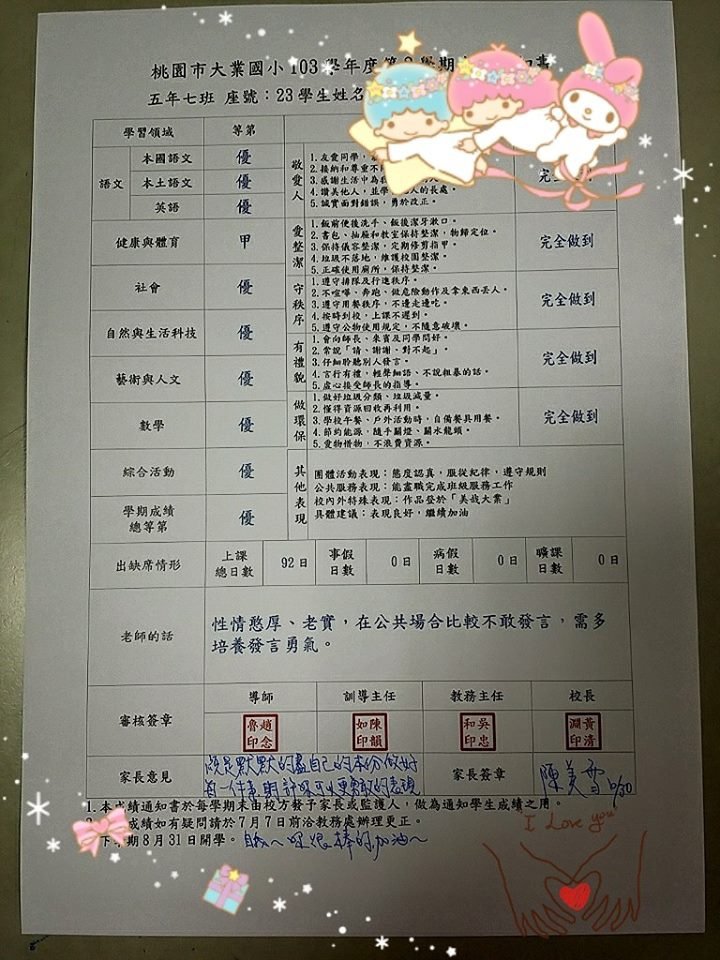 桃園市大業國小 103 學年度第2學期
五年七班 座號：23 學生姓名
學習領域 等第
語文 本國語文 優
本土語文 優
英語 優
健康與體育 甲
社會 優
自然與生活科技 優
藝術與人文 優
數學 優
綜合活動 優
學期成績總等第 優
敬愛人
1.友愛同學，
2.接納和尊重不
3.感謝生活中為
4.讚美他人，並學 人的長處。
5.誠實面對錯誤，勇於改正。
完全做到
愛整潔
1.飯前便後洗手、飯後潔牙漱口。
2.書包、抽屜和教室保持整潔，物歸定位。
3.保持儀容整潔，定期修剪指甲。
4.垃圾不落地，維護校園整潔。
5.正確使用廁所，保持整潔。
完全做到
守秩序
1.遵守排隊及行進秩序。
2.不喧嘩、奔跑、做危險動作及拿東西丟人。
3.遵守用餐秩序，不邊走邊吃。
4.按時到校，上課不遲到。
5.遵守公物使用規定，不隨意破壞。
完全做到
有禮貌
1.會向師長、來賓及同學問好。
2.常說「請、謝謝、對不起」。
3.仔細聆聽別人發言。
4.言行有禮，輕聲細語、不說粗暴的話。
5.虛心接受師長的指導。
完全做到
做環保
1.做好垃圾分類、垃圾減量。
2.懂得資源回收再利用。
3.學校午餐、戶外活動時，自備餐具用餐。
4.節約能源，隨手關燈、關水龍頭。
5.愛物惜物，不浪費資源。
完全做到
其他表現
團體活動表現：態度認真，服從紀律，遵守規則
公共服務表現：能盡職完成班級服務工作
校內外特殊表現：作品登於「美哉大業」
具體建議：表現良好，繼續加油
出缺席情形 上課總日數 92 日 事假日數 0 日 病假日數 0 日 曠課日數 0 日
老師的話 性情憨厚、老實，在公共場合比較不敢發言，需多
培養發言勇氣。
審核簽章 導師 訓導主任 教務主任 校長
魯趙印念 如陳印韻 和吳印忠 淵黃印清
家長意見 總是默默的盡自己的本份做好
每一件事,期許 可以更 的表現
家長簽章 陳美雪 6/30
1.本成績通知書於每學期末由校方發予家長或監護人，做為通知學生成績之用。
成績如有疑問請於 7 月 7 日前洽教務處辦理更正。
下 期 8 月 31 日開學。 ～ 很棒的加油～
I Love you